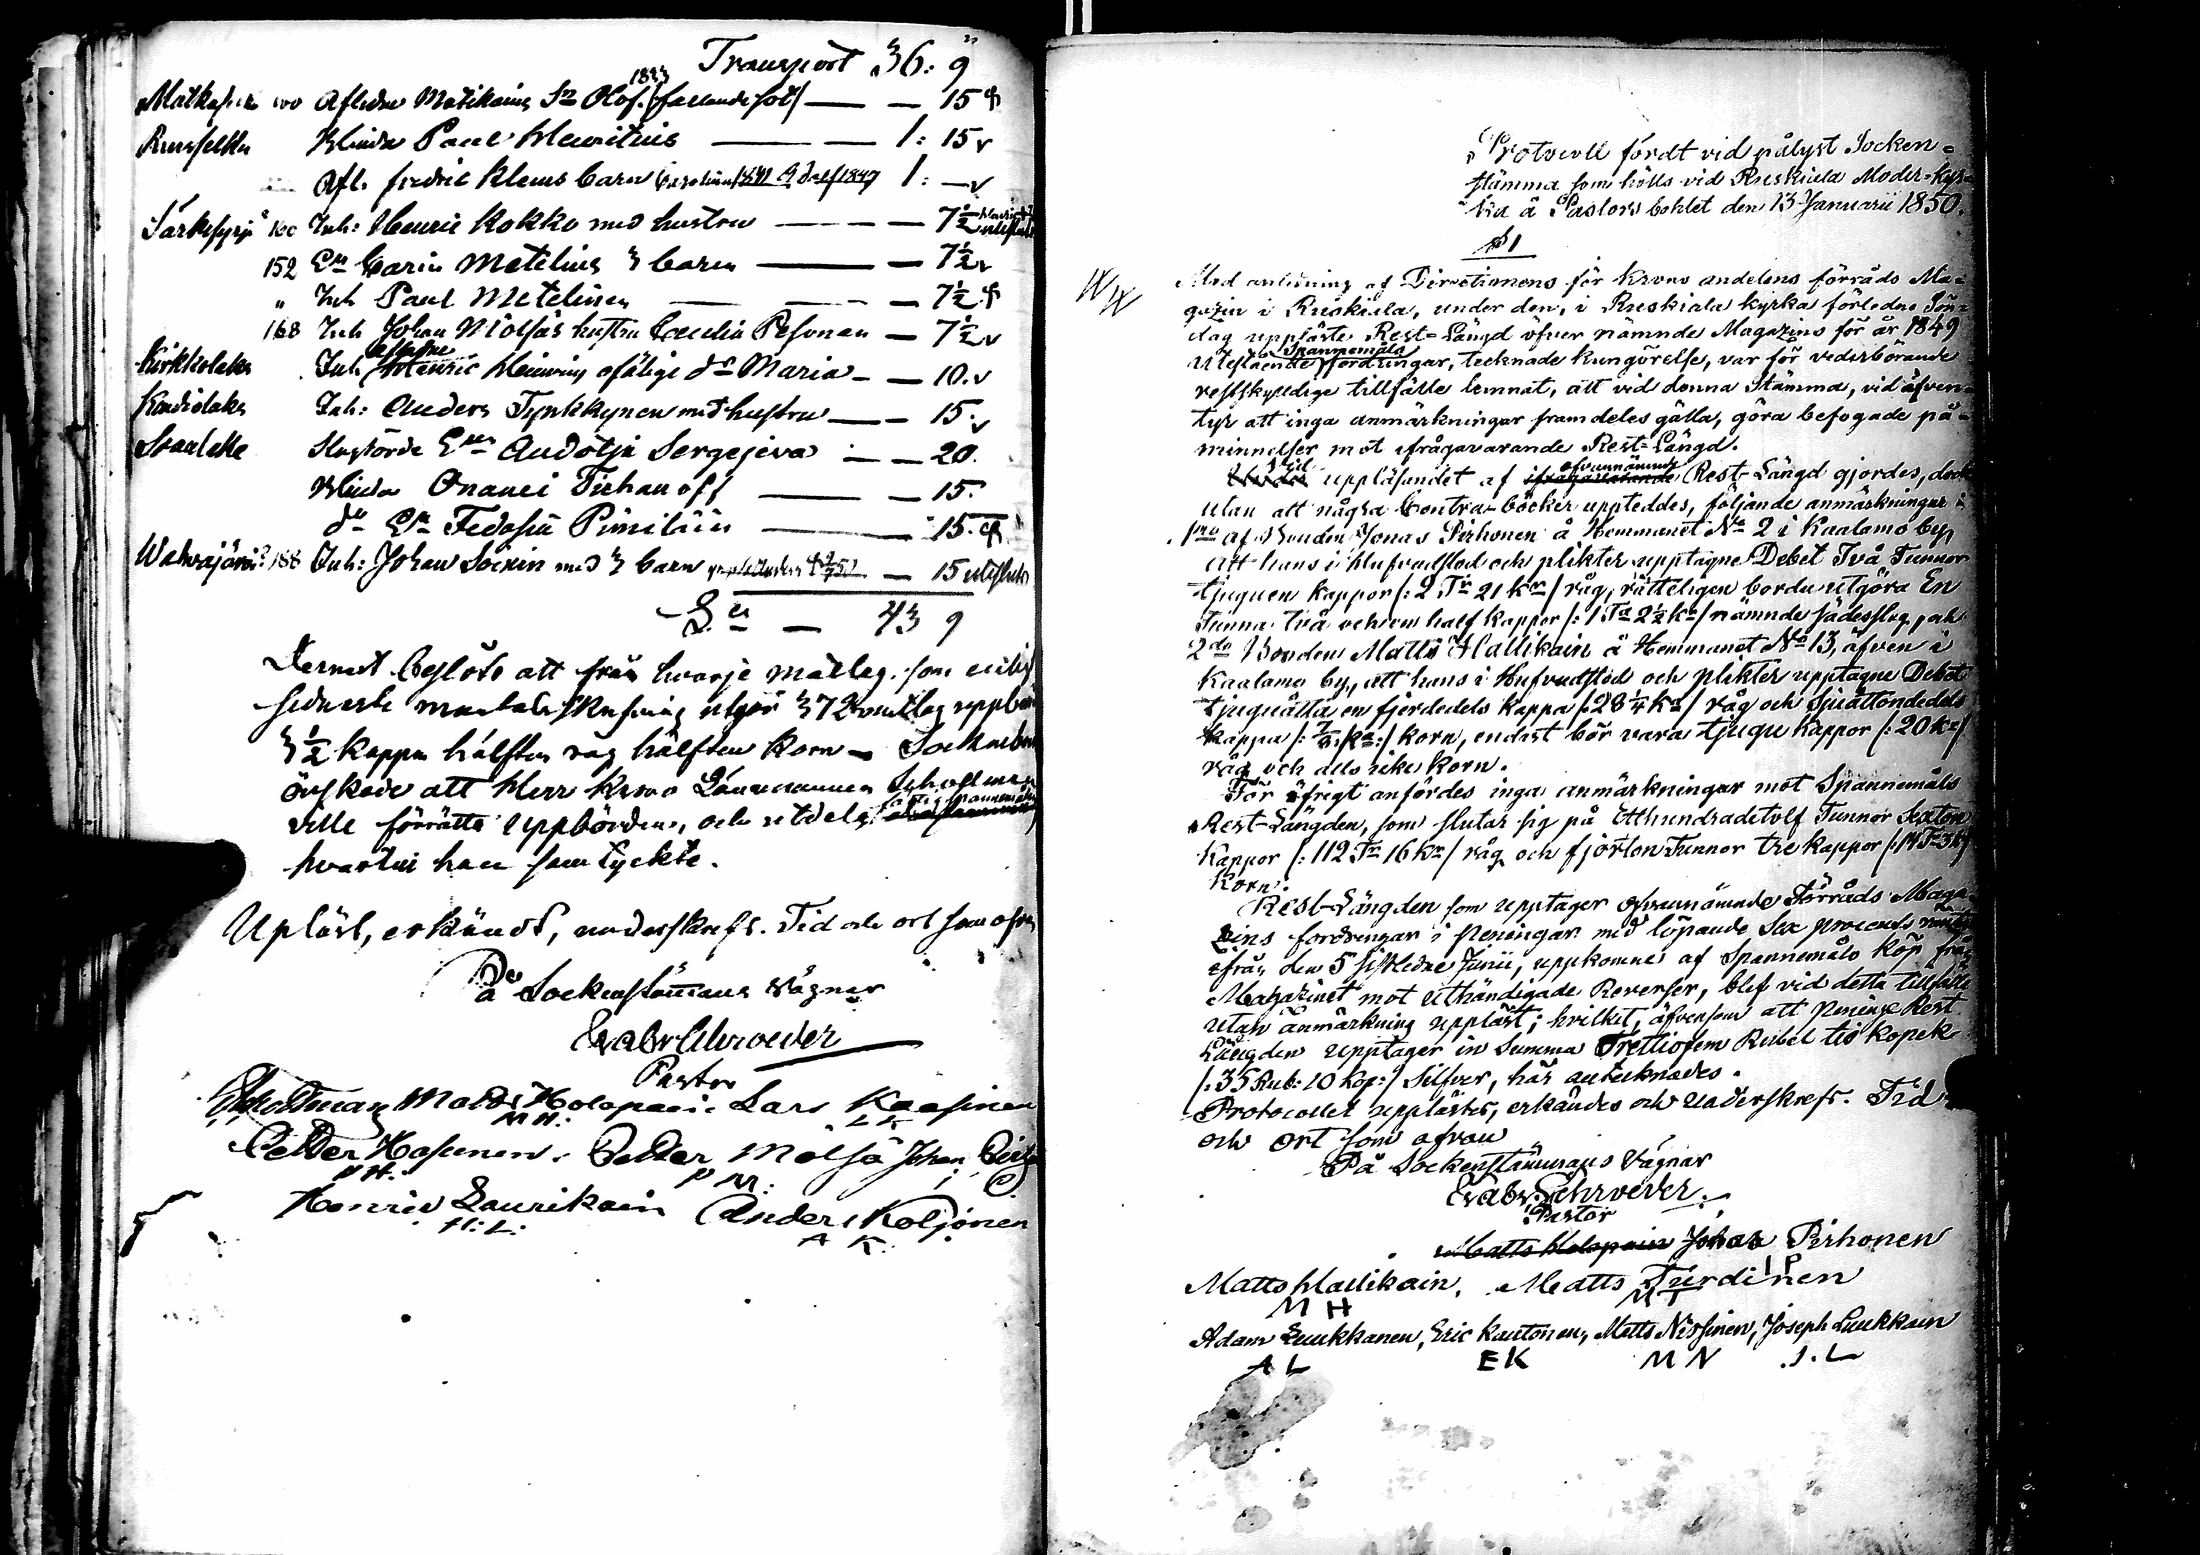 Transport 36: 9
Matkaselkä Aflidne Matikains Sn Olof /fallandesot/ — — 15
1833
Russelka Blinda Paul Mauritius — — 1: 15
Afl. fredric Klems barn 1: —
Särkisyrjä Inh: Henric Kokko med hustru — — 7½
152 En Carin Metelius 3 barn — — 7½
" Inh Paul Metelinen — — 7½
168 Inh Johan Mölsäs hustru Cecilia Pesonen — 7½
Kirkkolaks Inh Henric Heinin ofälige dr Maria — — 10.
Kondiolaks Inh: Anders Tynkkynen med hustru — — 15.
Enkan Audotja Sergejeva — — 20.
Blinda Onanei Tichanoff — — 15.
do En Fedosia Pimiläin — — 15.
188 Inh: Johan Soikin med 3 barn — 15
Sa — 43 9
Dernest beslöts att från hvarje matlag som enligt
sednaste mantals skrifning utgör 372 matlag uppbära
3½ kappa hälften råg hälften korn — Socknebon
önskade att Herr Krono Länsmannen Scholtman
ville förrätta uppbörden, och utdela
hvartill han samtyckte.
Upläst, erkändt, underskrefs. Tid och ort som ofvan
På Sockenstämans vägnar
Gabr Schroeder
Pastor
Scholtman Matts Holopain Lars Kaasinen
M H: L K
Petter Hasunen. Petter Mölsä Johan
P H: P M:
Henric Laurikain Anders Koljonen
H: L: A K:
Protocoll fördt vid pålyst Socken-
stämma som hölls vid Ruskiala Moder-kyr-
ka å Pastors bohlet den 13 Januarii 1850.
§ 1
Med anledning af Directionens för krono andelens förråds Ma-
gazin i Ruskiala, under den, i Ruskiala kyrka förledne Sön-
dag uppläste Rest-Längd öfver nämnde Magazins för år 1849
utestående Spannemåls fordringar, tecknade kungörelse, var för vederbörande
restskyldige tillfälle lemnat, att vid denna Stämma, vid äfven-
tyr att inga anmärkningar framdeles gälla, göra befogade på-
minnelser mot ifrågavarande Rest-Längd.
Vid uppläsandet af ofvannämnde Rest-Längd gjordes, dock
utan att några Contra-böcker uppteddes, följande anmärkningar
1mo af Bonden Jonas Pirhonen å Hemmanet No 2 i Kaalamo by,
att hans i Hufvudstod och plikter upptagne Debet Två Tunnor
tjuguen kappor /: 2 Tr 21 kr / råg, rätteligen borde utgöra En
Tunna två och en half kappor /: 1 Ta 2½ kr / nämnde sädesslag, och
2do Bonden Matts Hallikain å Hemmanet No 13, äfven i
Kaalamo by, att hans i Hufvudstod och plikter upptagne Debet
tjuguåtta en fjerdedels kappa /: 28¼ ka / råg och Sjuåttondedels
Kappa /: ⅞ ka :/ korn, endast bör vara tjugu kappor /: 20 kr /
råg och alls icke Korn.
För öfrigt anfördes inga anmärkningar mot Spannemåls
Rest-Längden, som slutar sig på Etthundradetolf Tunnor Sexton
Kappor /: 112 Tr 16 kr / råg och fjorton Tunnor tre kappor /: 14 Tr 3 kr /
Korn.
Rest-Längden som upptager ofvannämnde Förråds Maga-
zins fordringar i peningar med löpande Sex procents
ifrån den 5 sistledne Junii, uppkomne af Spannemåls köp från
Magazinet mot uthändigade Reverser, blef vid detta tillfälle
utan anmärkning uppläst; hvilket, äfvensom att Penninge Rest
Längden upptager in Summa Trettiofem Rubel tio kopek
/: 35 Rub: 10 Kop:/ Silfver, här antecknades.
Protocollet upplästes, erkändes och underskrefs. Tid
och Ort som ofvan
På Sockenstämmans vägnar
Gabr. Schroeder.
Pastor
Matts Holopain Johan Pirhonen
I P
Matts Hallikain, Matts Turdinen
M H M T
Adam Luukkanen, Eric Kautonen, Matts Nissinen, Joseph Luukkain
A L E K M N J. L